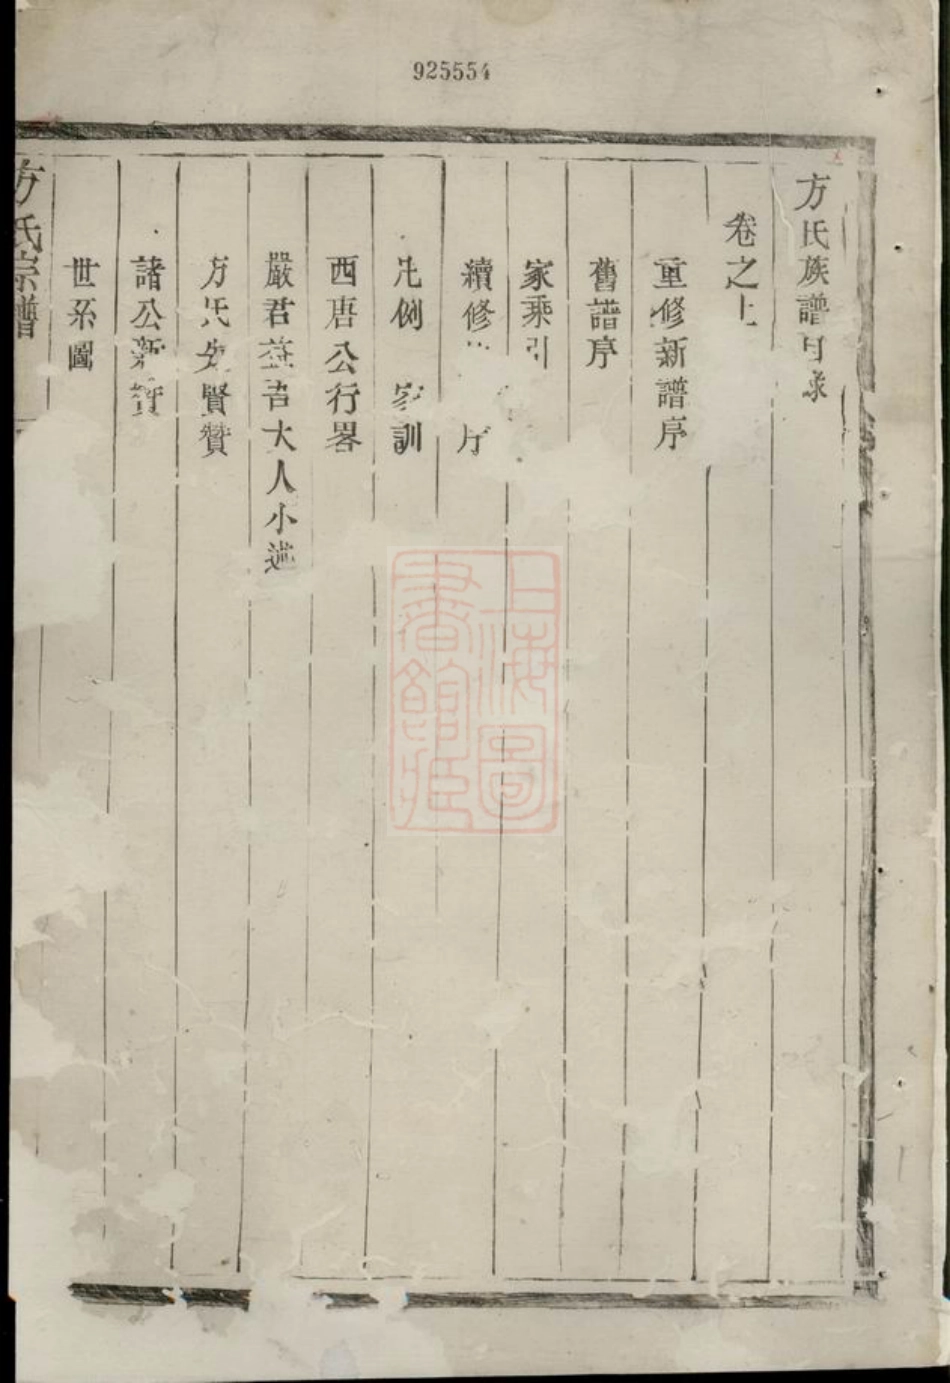 925554
方氏族譜目錄
卷之上
重修新譜序
舊譜序
家乘引
續修 序
凡例 家訓
西唐公行畧
嚴君益吉大人小述
方氏先賢贊
諸公新贊
世系圖
方氏宗譜
上海圖書館藏